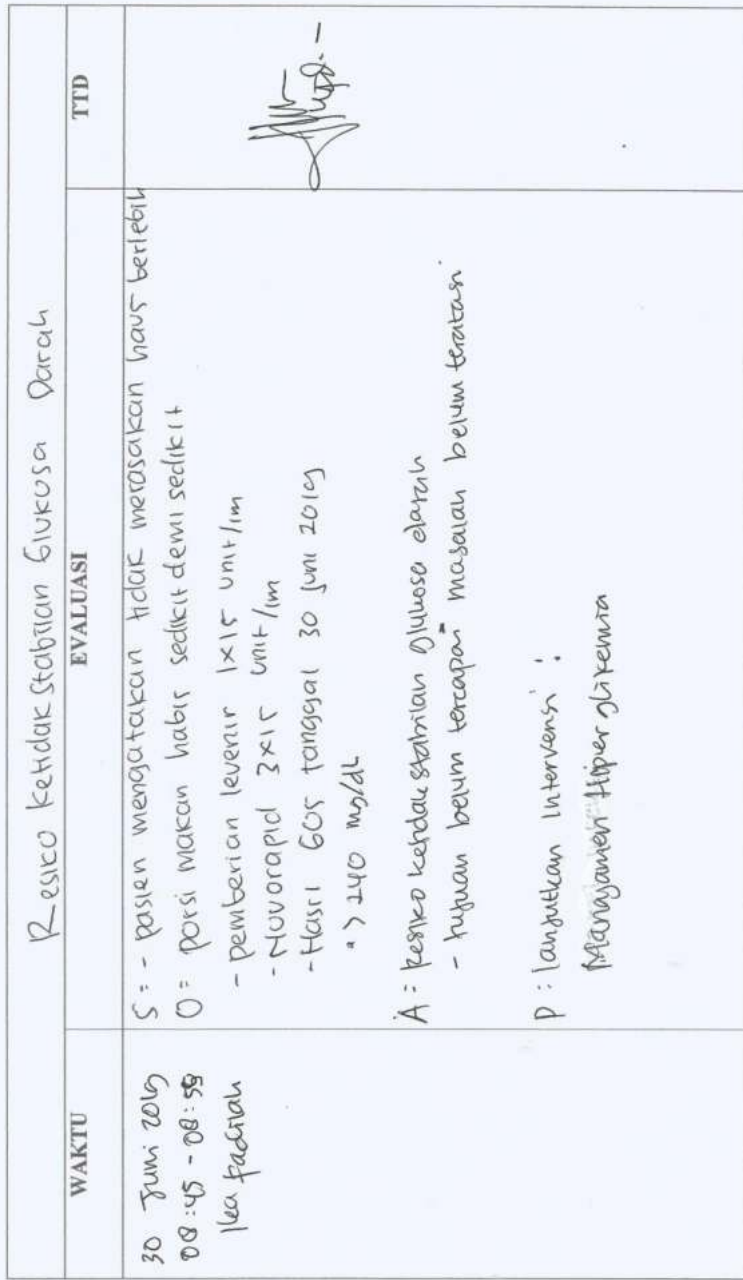 Resiko Ketidak stabilan Glukosa Darah
WAKTU
EVALUASI
TTD
30 Juni 2019
08:45 - 08:55
Ika Fadilah
S = - pasien mengatakan tidak merasakan haus berlebih
O = porsi makan habis sedikit demi sedikit
- pemberian levemir 1x15 unit/im
- Novorapid 3x15 unit/im
- Hasil GDS tanggal 30 Juni 2019
• > 240 mg/dL
A = Resiko ketidakstabilan glukosa darah
- tujuan belum tercapai masalah belum teratasi
P : lanjutkan Intervensi :
Manajamen Hiperglikemia